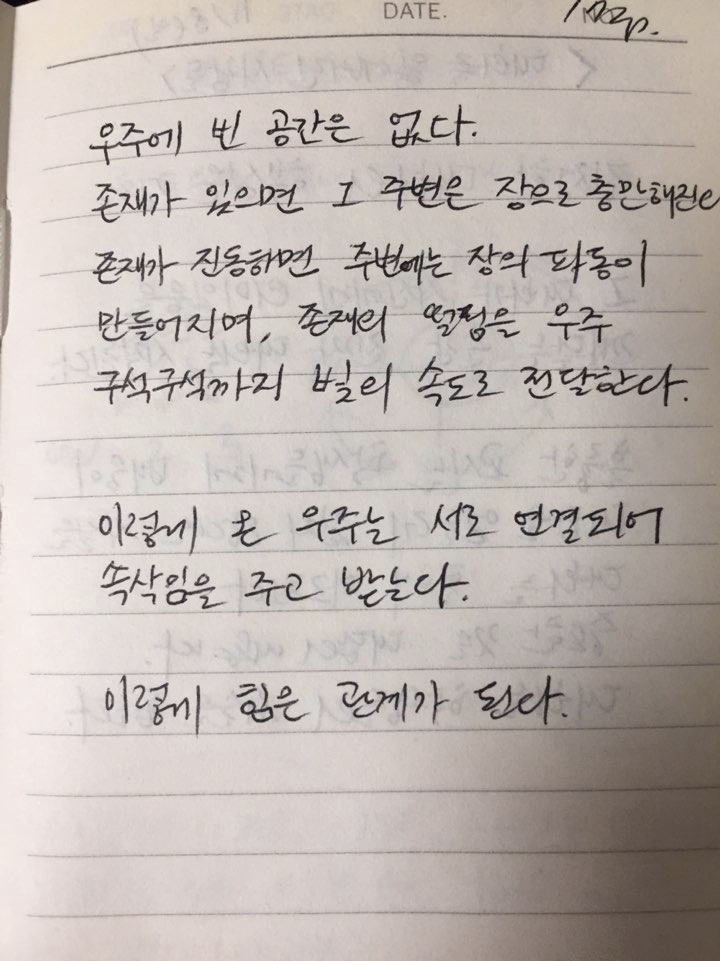 DATE.
우주에 빈 공간은 없다.
존재가 있으면 그 주변은 장으로 충만해진다
존재가 진동하면 주변에는 장의 파동이
만들어지며, 존재의 떨림을 우주
구석구석까지 빛의 속도로 전달한다.
이렇게 온 우주는 서로 연결되어
속삭임을 주고 받는다.
이렇게 힘은 관계가 된다.